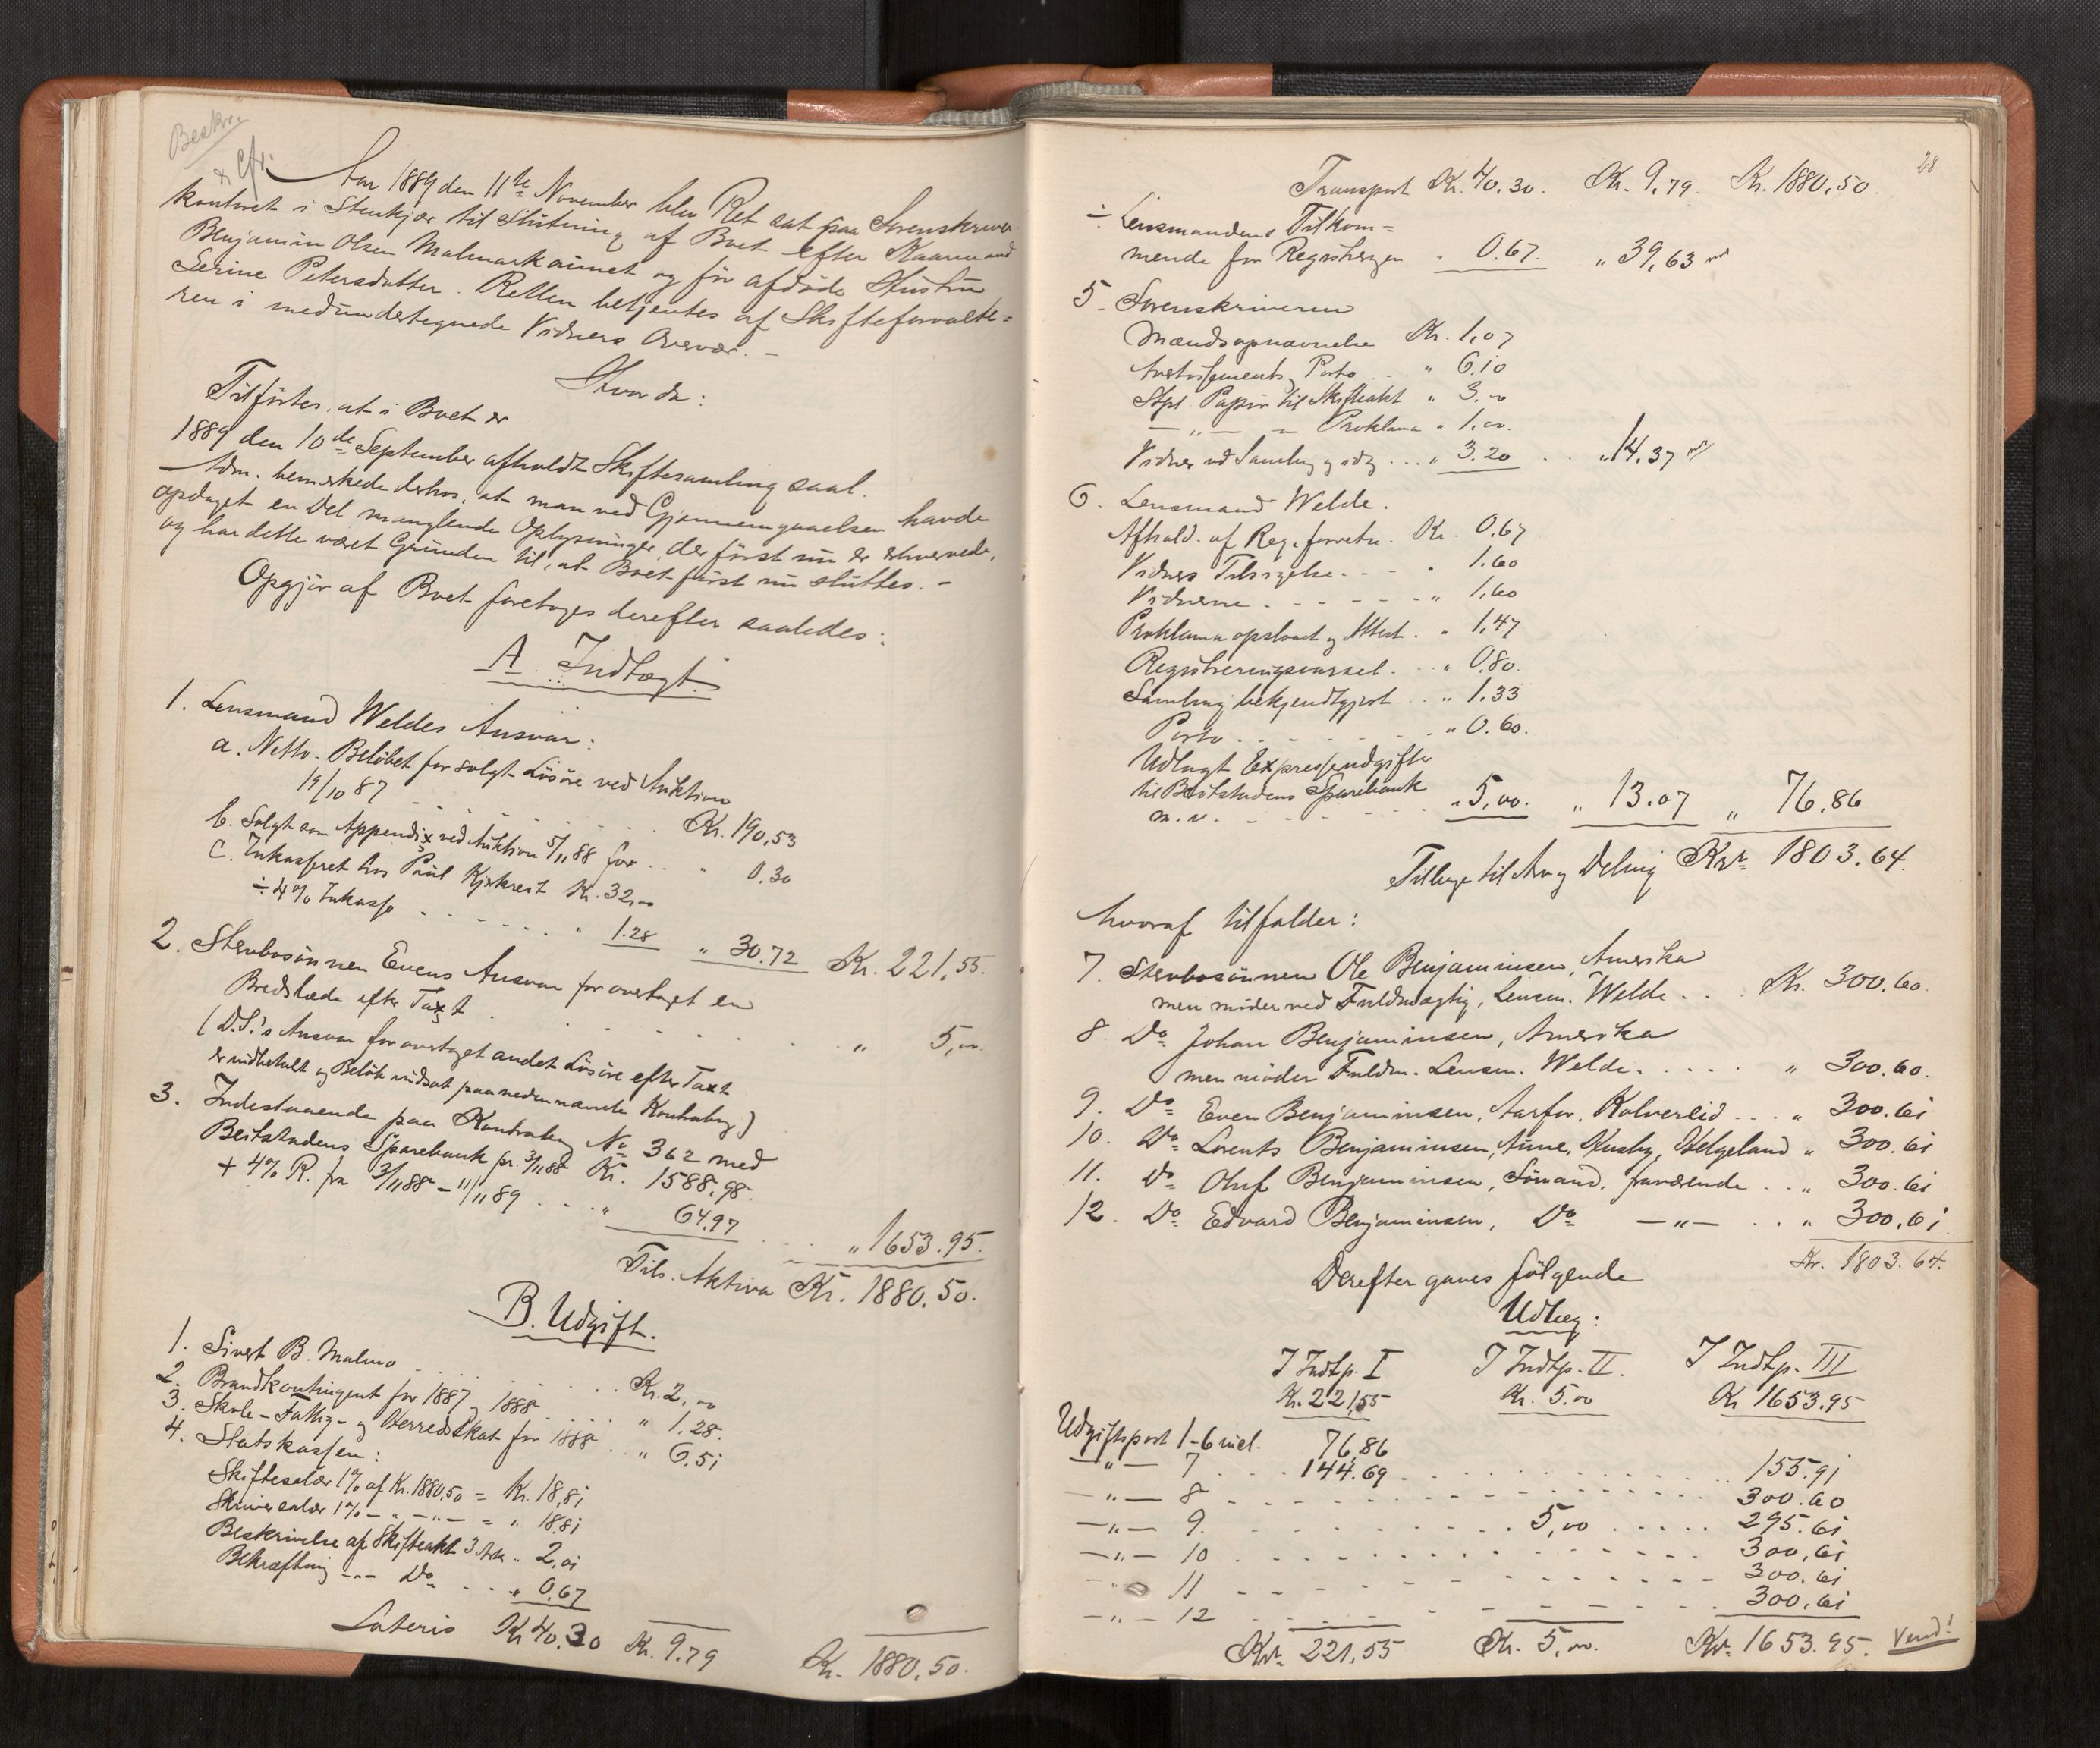 Beskr.
& Cfr.
Aar 1889 den 11te November blev Ret sat paa Sorenskriver
kontoret i Stenkjær til Slutning af Boet efter Kaarmand
Benjamin Olsen Malmarkaunet og før afdøde Hustru
Serine Petersdatter. Retten betjentes af Skifteforvalte=
ren i medundertegnede Vidners Overvær. –
Hvorda:
Tilførtes, at i Boet er
1889 den 10de September afholdt Skiftesamling saal.
Adm. bemærkede derhos, at man ved Gjennemgaaelsen havde
opdaget en Del manglende Oplysninger, der først nu er erhvervede,
og har dette været Grunden til, at Boet først nu sluttes. –
Opgjør af Boet foretoges derefter saaledes:
A. Indtægt.
1. Lensmand Weldes Ansvar:
a. Netto-Beløbet for solgt Løsøre ved Auktion
19/10 87 . . . . . Kr. 190,53
b. Solgt som Appendix ved Auktion 5/11 88 for . . " 0.30
c. Inkasseret hos Paul Kjerkreit Kr. 32,00
÷ 4% Inkasso . . . . . " 1.28 " 30.72 Kr. 221,55.
2. Stervbosønnen Evens Ansvar for overtaget en
Bredslæde efter Taxt . . . . . " 5,00.
(D.S.'s Ansvar for overtaget andet Løsøre efter Taxt
er indbetalt og Beløb indsat paa nedennævnte Kontrabog)
3. Indestaaende paa Kontrabog No 362 med
Beitstadens Sparebank pr. 3/11 88 Kr. 1588,98.
+ 4% R. fra 3/11 88 – 11/11 89 . . . " 64.97 . . . " 1653.95.
Tils. Aktiva Kr. 1880.50.
B. Udgift.
1. Sivert B. Malmo . . . . . Kr. 2,00
2. Brandkontingent for 1887 og 1888 . . . . " 1.28.
3. Skole- Fattig- og Herredskat for 1888 . . " 6.51
4. Statskassen:
Skiftesalær 1% af Kr. 1880,50 = Kr. 18,81
Skriversalær 1% – " – " – = " 18.81
Beskrivelse af Skifteakt 3 Ark " 2,01
Bekræftning --- Do . . . " 0.67
Lateris Kr 40.30 Kr. 9.79 Kr. 1880.50.
28
Transport Kr. 40.30. Kr. 9,79. Kr. 1880,50.
÷ Lensmandens Tilkom=
mende for Registreringen " 0.67. " 39,63
5. Sorenskriveren
Mændsopnævnelse Kr. 1,07
Avertissements, Porto . . " 6.10
Stpl. Papir til Skifteakt " 3.00
– " – – Proklama " 1,00.
Vidner ved Samling og idg . . . " 3.20 . . . " 14.37
6. Lensmand Welde.
Afhold. af Reg.forretn. Kr. 0.67
Vidners Tilsigelse . - - " 1.60
Vidnerne . - - - - - " 1,60
Proklama opslaaet og Attest . " 1,47
Registreringsvarsel . . . " 0.80.
Samling bekjendtgjort . . " 1.33
Porto . . . . . " 0.60.
Udlagt Expressendgifter
til Beitstadens Sparebank
m.v. - - - - - " 5,00. " 13.07 " 76,86
Tilbage til Arv og Deling Kr. 1803.64.
hvoraf tilfalder:
7. Stervbosønnen Ole Benjaminsen, Amerika
men møder ved Fuldmægtig, Lensm. Welde . . . Kr. 300.60.
8. Do Johan Benjaminsen, Amerika
men møder Fuldm. Lensm. Welde. . . . . " 300.60.
9. Do Even Benjaminsen, Aarfor, Kolvereid . . . " 300.61
10. Do Lorents Benjaminsen, Aune, Husby, Helgeland " 300.61
11. Do Oluf Benjaminsen, Sømand, fraværende . . " 300.61
12. Do Edvard Benjaminsen, Do – " – . . " 300.61.
Kr. 1803.64.
Derefter gaves følgende
Udlæg:
I Indtp. I I Indtp. II. I Indtp. III
Kr. 221,55 Kr. 5.00 Kr 1653.95
Udgiftspost 1-6 incl. 76,86
– " – 7 . . . 144.69 . . . . . 155.91
– " – 8 . . . . . 300.60
– " – 9. . . . . . 5,00 . . . . . 295.61
– " – 10 . . . . . 300,61
– " – 11 . . . . . 300.61
– " – 12 . . . . . 300.61
Kr. 221.55 Kr. 5,00. Kr. 1653.95. Vend!